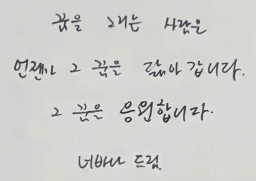 꿈을 그리는 사람은
언젠가 그 꿈을 닮아 갑니다.
그 꿈을 응원합니다.
드림